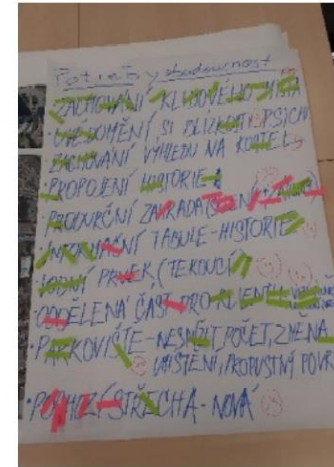 Potřeby budoucnost
ZACHOVÁNÍ KLIDOVÉHO MÍSTA
• UVĚDOMĚNÍ SI BLÍZKOSTI PSYCH.
• ZACHOVÁNÍ VÝHLEDU NA KOSTEL
• PROPOJENÍ HISTORIE
• PRODUKČNÍ ZAHRADA
• INFORMAČNÍ TABULE - HISTORIE
• VODNÍ PRVEK (TEKOUCÍ)
• ODDĚLENÁ ČÁST PRO KLIENTY
• PARKOVIŠTE - NESNÍŽIT POČET, ZMĚNA
UMÍSTĚNÍ, PROPUSTNÝ POVR
• POCHOZÍ STŘECHA - NOVÁ